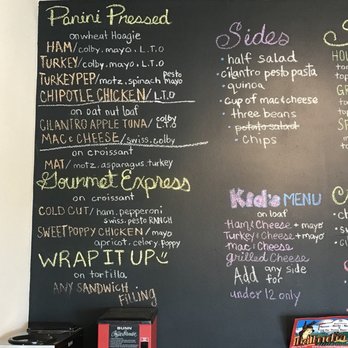 Panini Pressed
on wheat Hoagie
HAM/colby.mayo.L.T.O
TURKEY/colby.mayo.L.T.O
TURKEY PEP/motz.spinach pesto mayo
CHIPOTLE CHICKEN/L.T.O
on oat nut loaf
CILANTRO APPLE TUNA/colby L.T.O
MAC & CHEESE/swiss.colby
on croissant
MAT/motz.asparagus.turkey
Gourmet Express
on croissant
COLD CUT/ham.pepperoni
swiss.pesto RANCH
SWEET POPPY CHICKEN/mayo
apricot.celery.poppy
WRAP IT UP
on tortilla
ANY SANDWICH
FILLING
Sides
• half salad
• cilantro pesto pasta
• quinoa
• cup of mac & cheese
• three beans
• potato salad
• chips
Kid's MENU
on loaf
Ham & Cheese + mayo
Turkey & Cheese + mayo
mac & Cheese
grilled Cheese
Add any side
for
under 12 only
BUNN